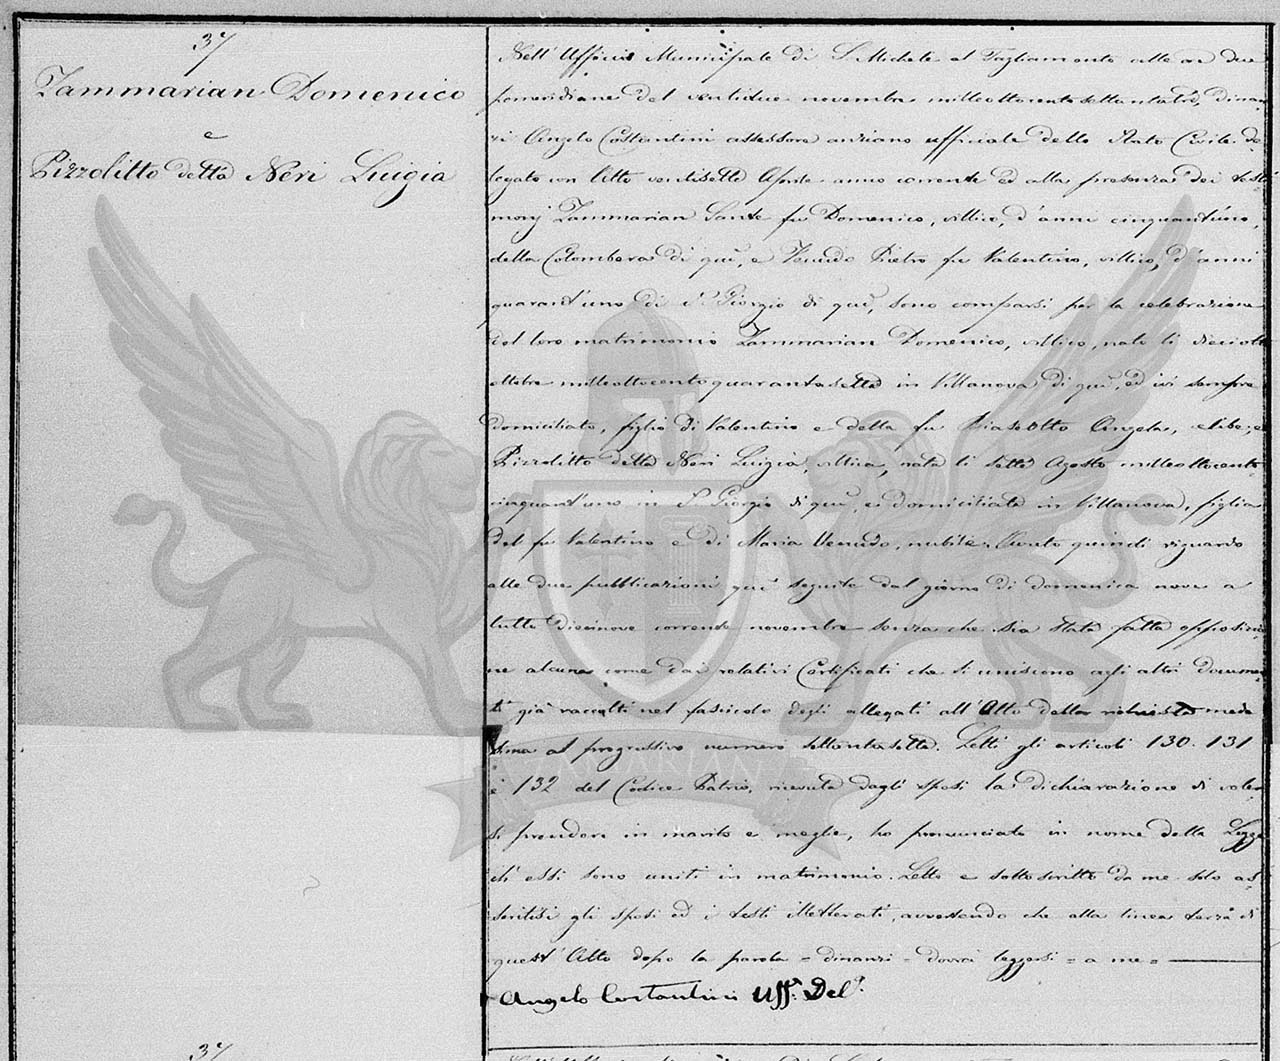 37
Zammarian Domenico
e
Pizzolitto detta Neri Luigia
Nell' Ufficio Municipale di S. Michele al Tagliamento alle ore due
pomeridiane del ventidue novembre milleottocentosettantatrè, dinan
zi Angelo Costantini assessore anziano ufficiale dello Stato Civile de
legato con Atto ventisette Aprile anno corrente ed alla presenza dei testi
monj Zammarian Sante fu Domenico, villico, d'anni cinquant'uno,
della Colombera di quì, e Venudo Pietro fu Valentino, villico, d'anni
quarant'uno di S. Giorgio di quì, sono comparsi per la celebrazione
del loro matrimonio Zammarian Domenico, villico, nato li dieciotto
ottobre milleottocentoquarantasette in Villanova di quì, ed ivi sempre
domiciliato, figlio di Valentino e della fu Biasotto Angela, celibe, e
Pizzolitto detta Neri Luigia, villica, nata li sette Agosto milleottocento
cinquant'uno in S. Giorgio di quì, e domiciliata in Villanova, figlia
del fu Valentino e di Maria Venudo, nubile. Avuto quindi riguardo
alle due pubblicazioni quì seguite dal giorno di domenica nove a
tutto diecinove corrente novembre senza che sia stata fatta opposizio
ne alcuna come dai relativi Certificati che si uniscono agli altri documen
ti già raccolti nel fascicolo degli allegati all' Atto della richiesta mede
sima al progressivo numero settantasette. Letti gli articoli 130. 131
e 132 del Codice Patrio, ricevuta dagli sposi la dichiarazione di voler
si prendere in marito e moglie, ho pronunciato in nome della Legge
ch' essi sono uniti in matrimonio. Letto e sottoscritto da me solo as
seritisi gli sposi ed i testi illetterati, avvertendo che alla linea terza di
quest' Atto dopo la parola = dinanzi = dovrà leggersi = a me =
Angelo Costantini Uff. Del.
ZAMMARIAN
37